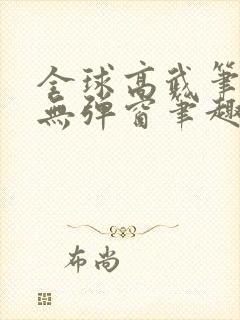 全球高武笔
無弹窗笔趣
布尚